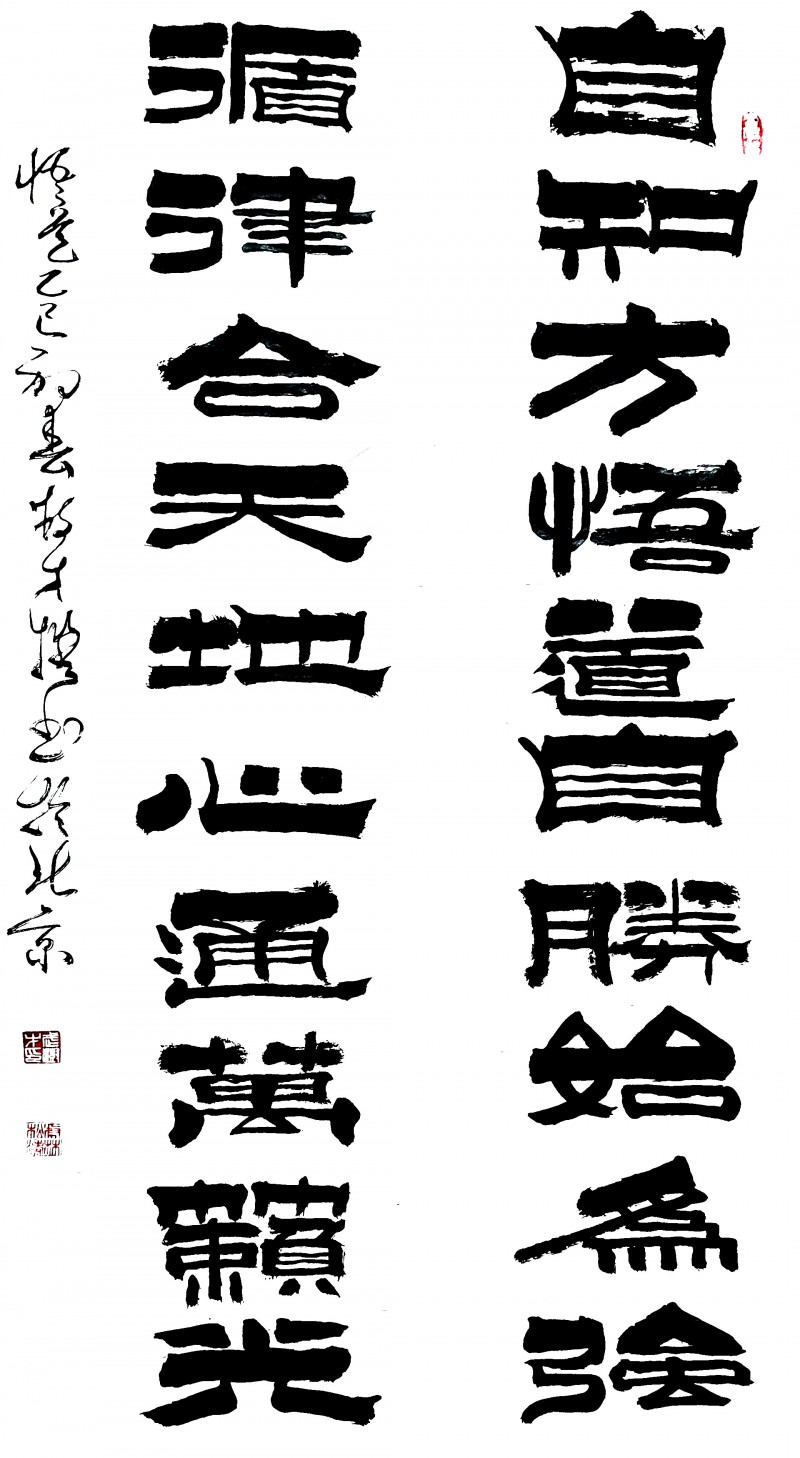 自知方悟道自勝始為強
循律合天地心通萬籟光
悟道 乙巳初春 才 书於北京